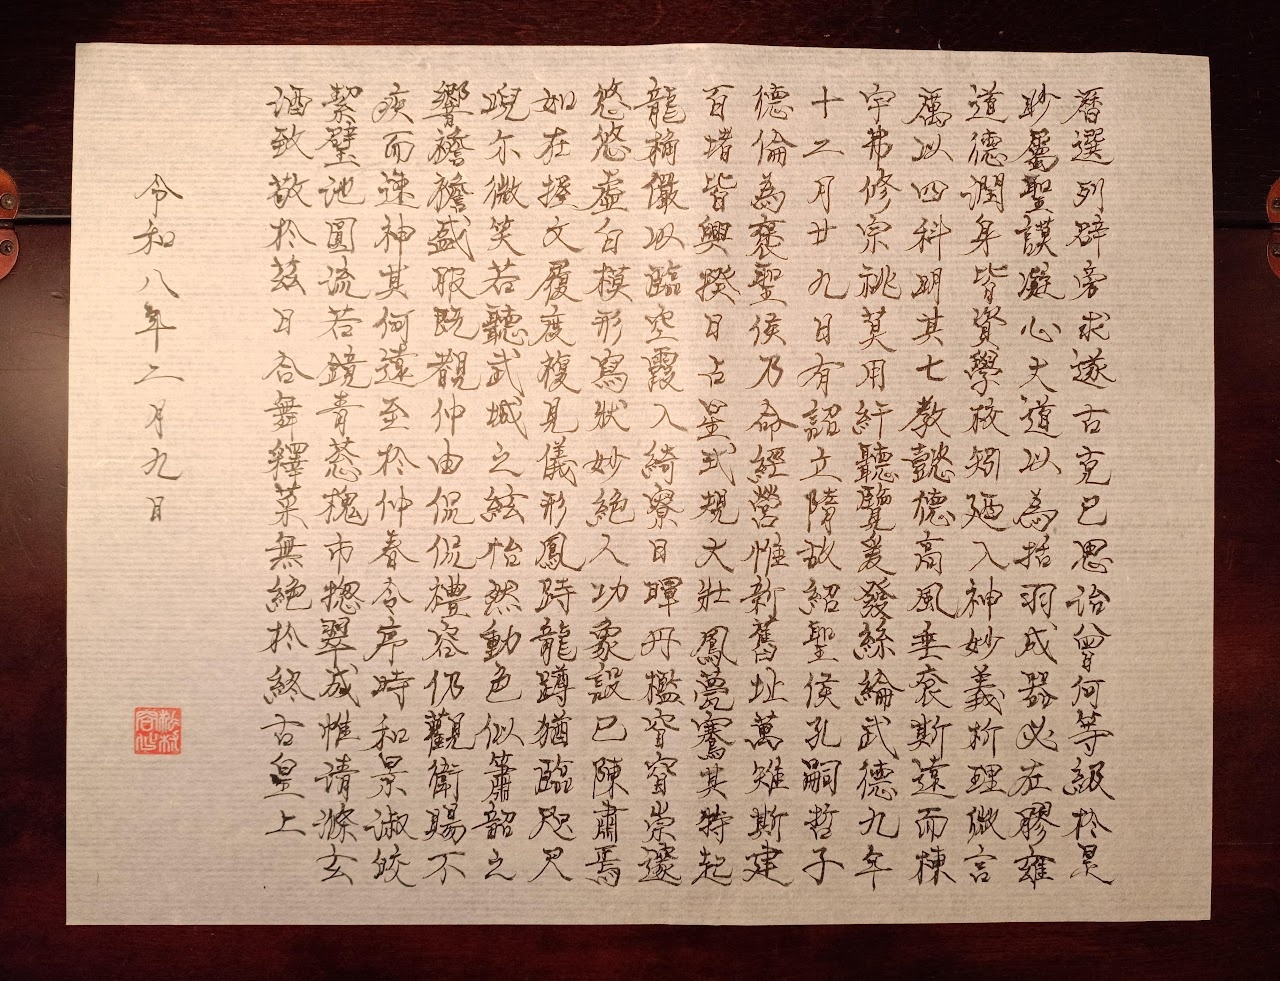 暦選列辟旁求遂古克己思治曾何等級於是
眇屬聖謨凝心大道以為括羽成器必在膠雍
道德潤身皆資學校矧廼入神妙義析理微言
厲以四科明其七教懿德高風垂裕斯遠而棟
宇弗修宗祧莫用紆聽覽爰發絲綸武德九年
十二月廿九日有詔立隋故紹聖侯孔嗣哲子
德倫為褒聖侯乃命經營惟新舊址萬雉斯建
百堵皆興揆日占星式規大壯鳳甍騫其特起
龍桷儼以臨空霞入綺寮日暉丹檻窅窅崇邃
悠悠虛白模形寫狀妙絶人功象設已陳肅焉
如在握文履度複見儀形鳳跱龍蹲猶臨咫尺
睨尓微笑若聽武城之絃怡然動色似簫韶之
響襜襜盛服既覩仲由侃侃禮容仍觀衛賜不
疾而速神其何遠至於仲春令序時和景淑皎
絜璧池圓流若鏡青葱槐市揔翠成帷請滌玄
酒致敬於茲日合舞釋菜無絶於終古皇上
令和八年二月九日